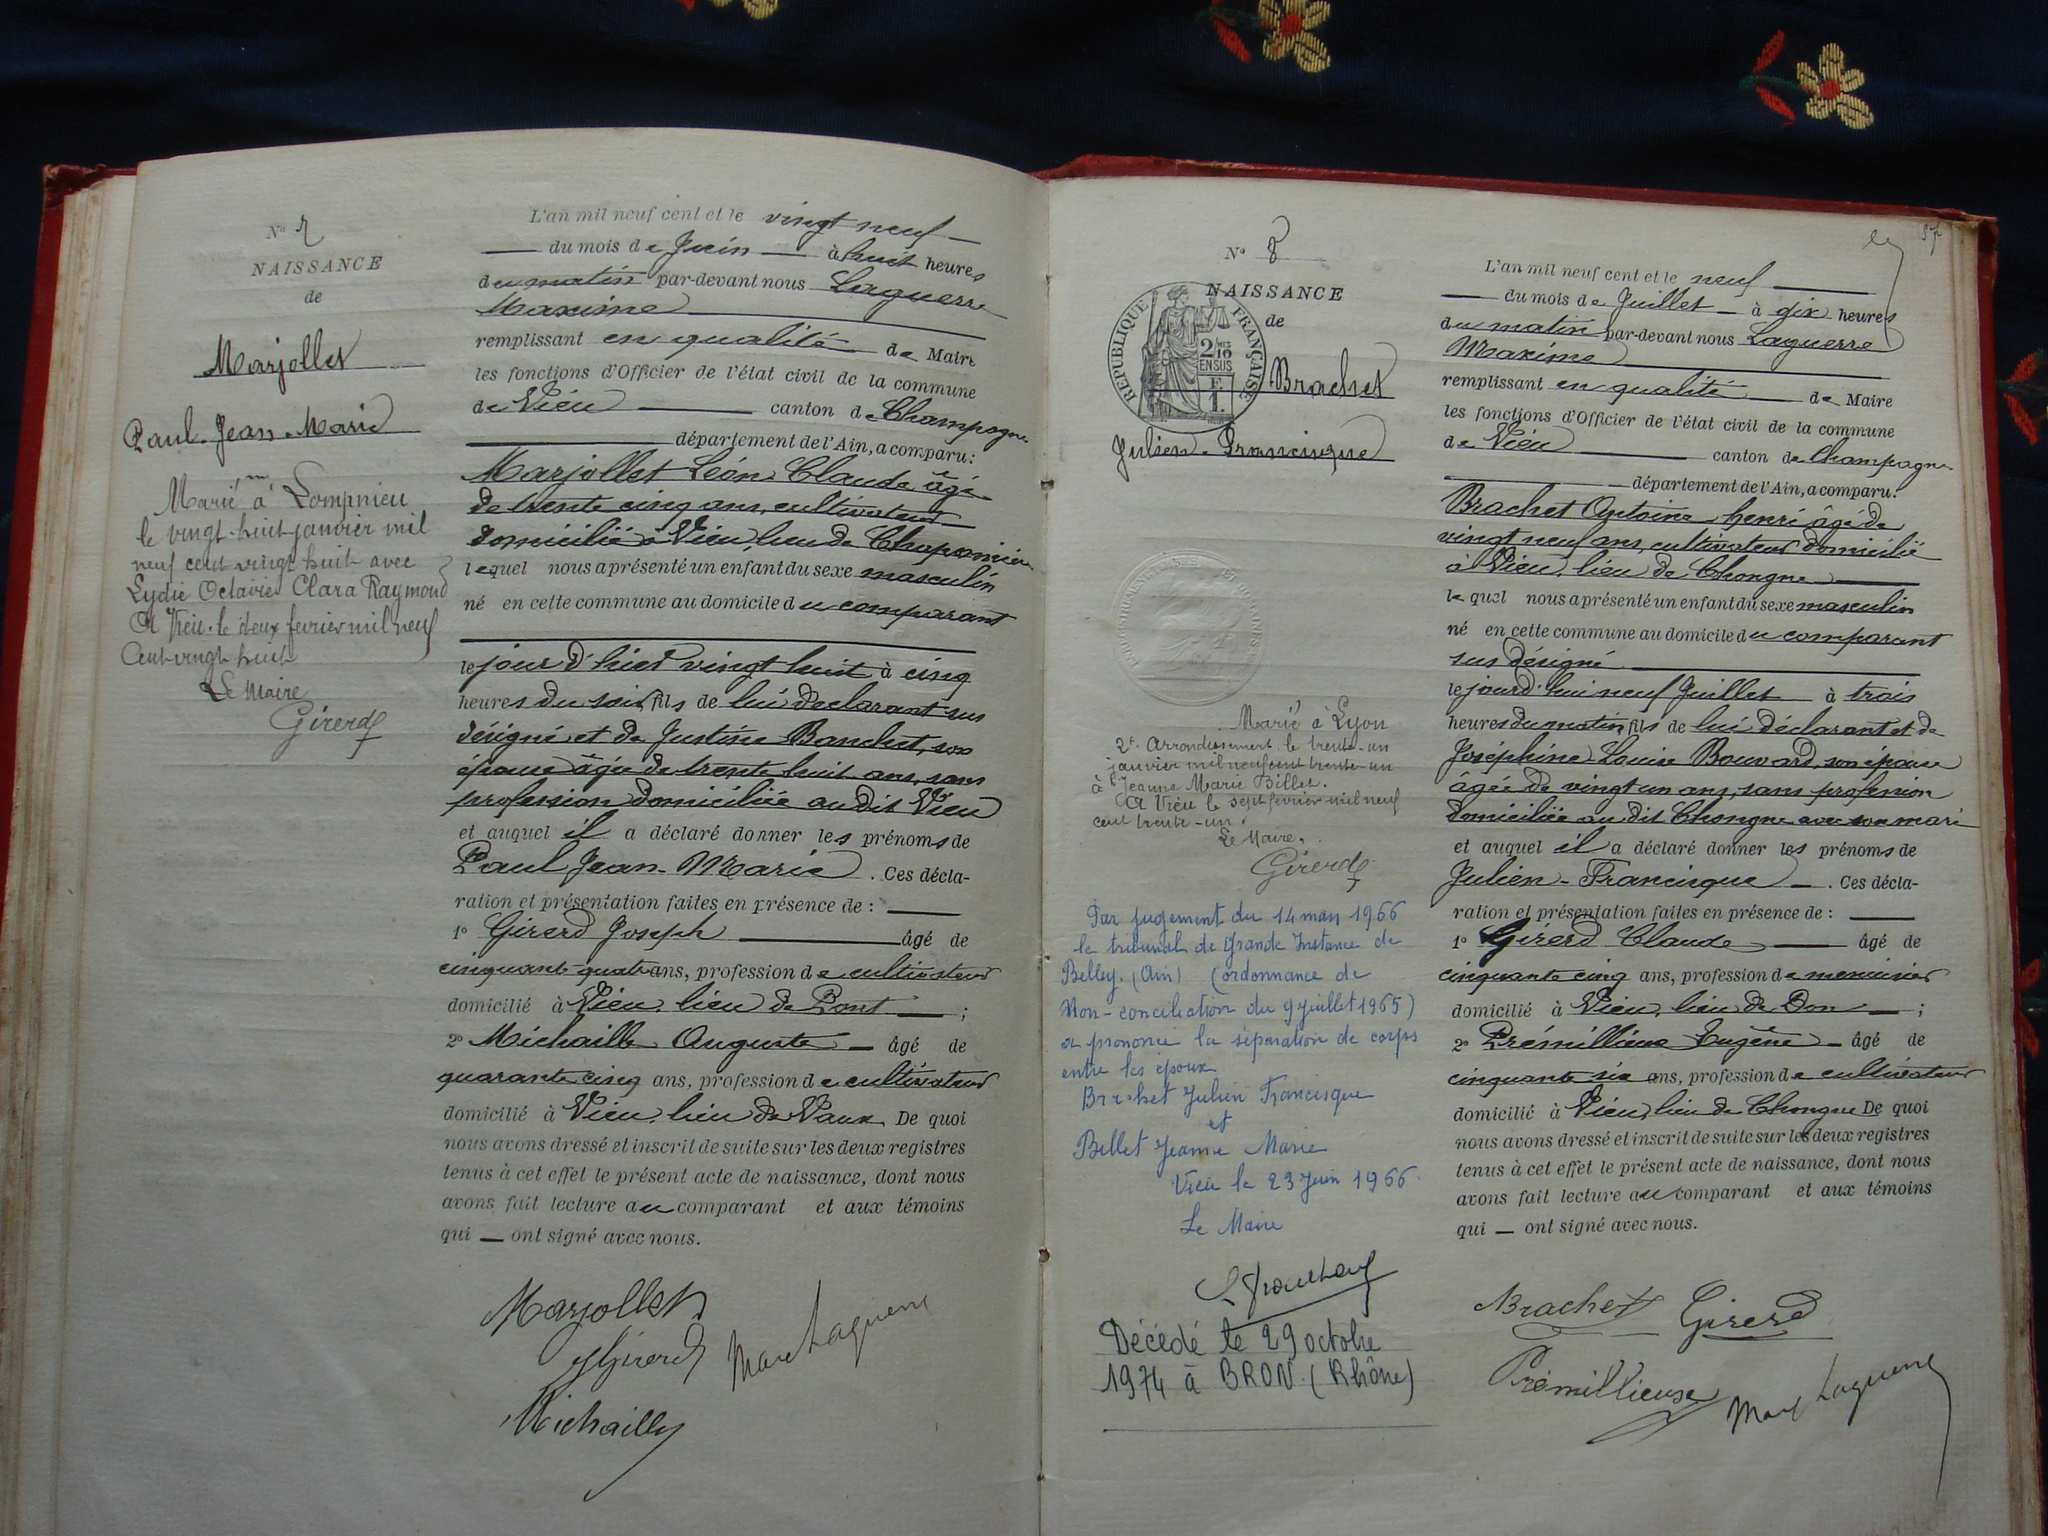 N°
NAISSANCE
de
Marjollet
Paul-Jean-Marie
Marié à Lompnieu
le vingt-huit janvier mil
neuf cent vingt huit avec
Lydie Octavie Clara Raymond
A Vieu le deux fevrier mil neuf
cent vingt huit
Le Maire
Girerd
L'an mil neuf cent et le vingt neuf
du mois de Juin à huit heures
du matin par-devant nous Laguerre
Maxime
remplissant en qualité de Maire
les fonctions d'Officier de l'état civil de la commune
de Vieu canton de Champagne
département de l'Ain, a comparu:
Marjollet Léon Claude âgé
de trente cinq ans, cultivateur
domicilié à Vieu, lieu de
lequel nous a présenté un enfant du sexe masculin
né en cette commune au domicile du comparant
le jour d'hier vingt huit à cinq
heures du soir, fils de lui déclarant sus
désigné et de Justine Banchet, son
épouse âgée de trente huit ans, sans
profession domiciliée au dit Vieu
et auquel il a déclaré donner les prénoms de
Paul Jean-Marie . Ces décla-
ration et présentation faites en présence de :
1° Girerd Joseph âgé de
cinquante quatre ans, profession de cultivateur
domicilié à Vieu, lieu de Pont ;
2° Michaille Auguste âgé de
quarante cinq ans, profession de cultivateur
domicilié à Vieu, lieu de Vaux De quoi
nous avons dressé et inscrit de suite sur les deux registres
tenus à cet effet le présent acte de naissance, dont nous
avons fait lecture au comparant et aux témoins
qui — ont signé avec nous.
Marjollet
JGirerd Max Laguerre
Michailly
57
N° 8
NAISSANCE
de
REPUBLIQUE FRANÇAISE
2/10
EN SUS
F.
1.
Brachet
Julien-Francisque
Marié à Lyon
2e Arrondissement le trente-un
janvier mil neuf cent trente-un
à Jeanne Marie Billet.
A Vieu le sept fevrier mil neuf
cent trente-un.
Le Maire,
Girerd
Par jugement du 14 mars 1966
le tribunal de Grande Instance de
Belley (Ain) (ordonnance de
Non-conciliation du 9 juillet 1965)
a prononcé la séparation de corps
entre les époux
Brachet Julien Francisque
et
Billet Jeanne Marie
Vieu le 23 Juin 1966.
Le Maire
Décédé le 29 octobre
1974 à BRON (Rhône)
L'an mil neuf cent et le neuf
du mois de Juillet à dix heures
du matin par-devant nous Laguerre
Maxime
remplissant en qualité de Maire
les fonctions d'Officier de l'état civil de la commune
de Vieu canton de Champagne
département de l'Ain, a comparu:
Brachet Antoine henri âgé de
vingt neuf ans, cultivateur domicilié
à Vieu, lieu de Chongne
lequel nous a présenté un enfant du sexe masculin
né en cette commune au domicile du comparant
sus désigné
le jourd'hui neuf Juillet à trois
heures du matin, fils de lui déclarant et de
Joséphine Louise Bouvard, son épouse
âgée de vingt un ans, sans profession
domiciliée au dit Chongne avec son mari
et auquel il a déclaré donner les prénoms de
Julien-Francisque . Ces décla-
ration et présentation faites en présence de :
1° Girerd Claude âgé de
cinquante cinq ans, profession de menuisier
domicilié à Vieu, lieu de Don ;
2° Prémillieux Eugène âgé de
cinquante six ans, profession de cultivateur
domicilié à Vieu, lieu de Chongne De quoi
nous avons dressé et inscrit de suite sur les deux registres
tenus à cet effet le présent acte de naissance, dont nous
avons fait lecture au comparant et aux témoins
qui — ont signé avec nous.
Brachet Girerd
Prémillieux Max Laguerre